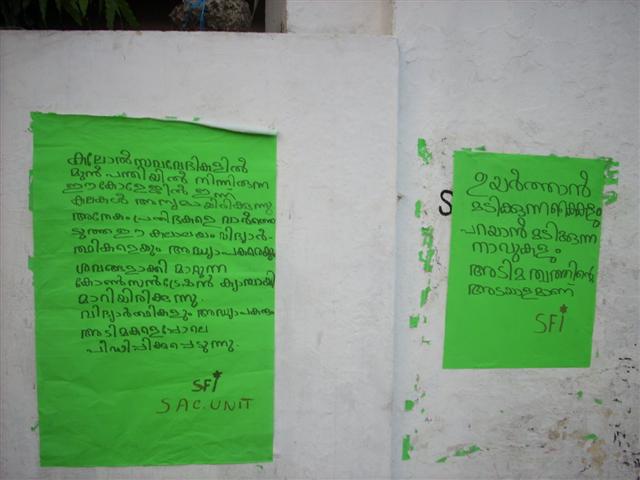 കലോൽസവവേദികളിൽ
മുൻ പന്തിയിൽ നിന്നിരുന്ന
ഈ കോളേജിൽ ഇന്ന്
കലകൾ അന്യമായിരിക്കുന്നു
അനേകം പ്രതിഭകളെ വാർത്തെ
ടുത്ത ഈ കലാലയം വിദ്യാർ-
ത്ഥികളെയും അദ്ധ്യാപകരെയും
ശവങ്ങളാക്കി മാറ്റുന്ന
കോൺസൻട്രേഷൻ ക്യാമ്പായി
മാറിയിരിക്കുന്നു.
വിദ്യാർത്ഥികളും അദ്ധ്യാപകരും
അടിമകളെപ്പോലെ
പീഢിപ്പിക്കപ്പെടുന്നു.
SFI
SAC. UNIT
ഉയർത്താൻ
മടിക്കുന്ന കൈകളും
പറയാൻ മടിക്കുന്ന
നാവുകളും
അടിമത്വത്തിന്റെ
അടയാളമാണ്
SFI
S